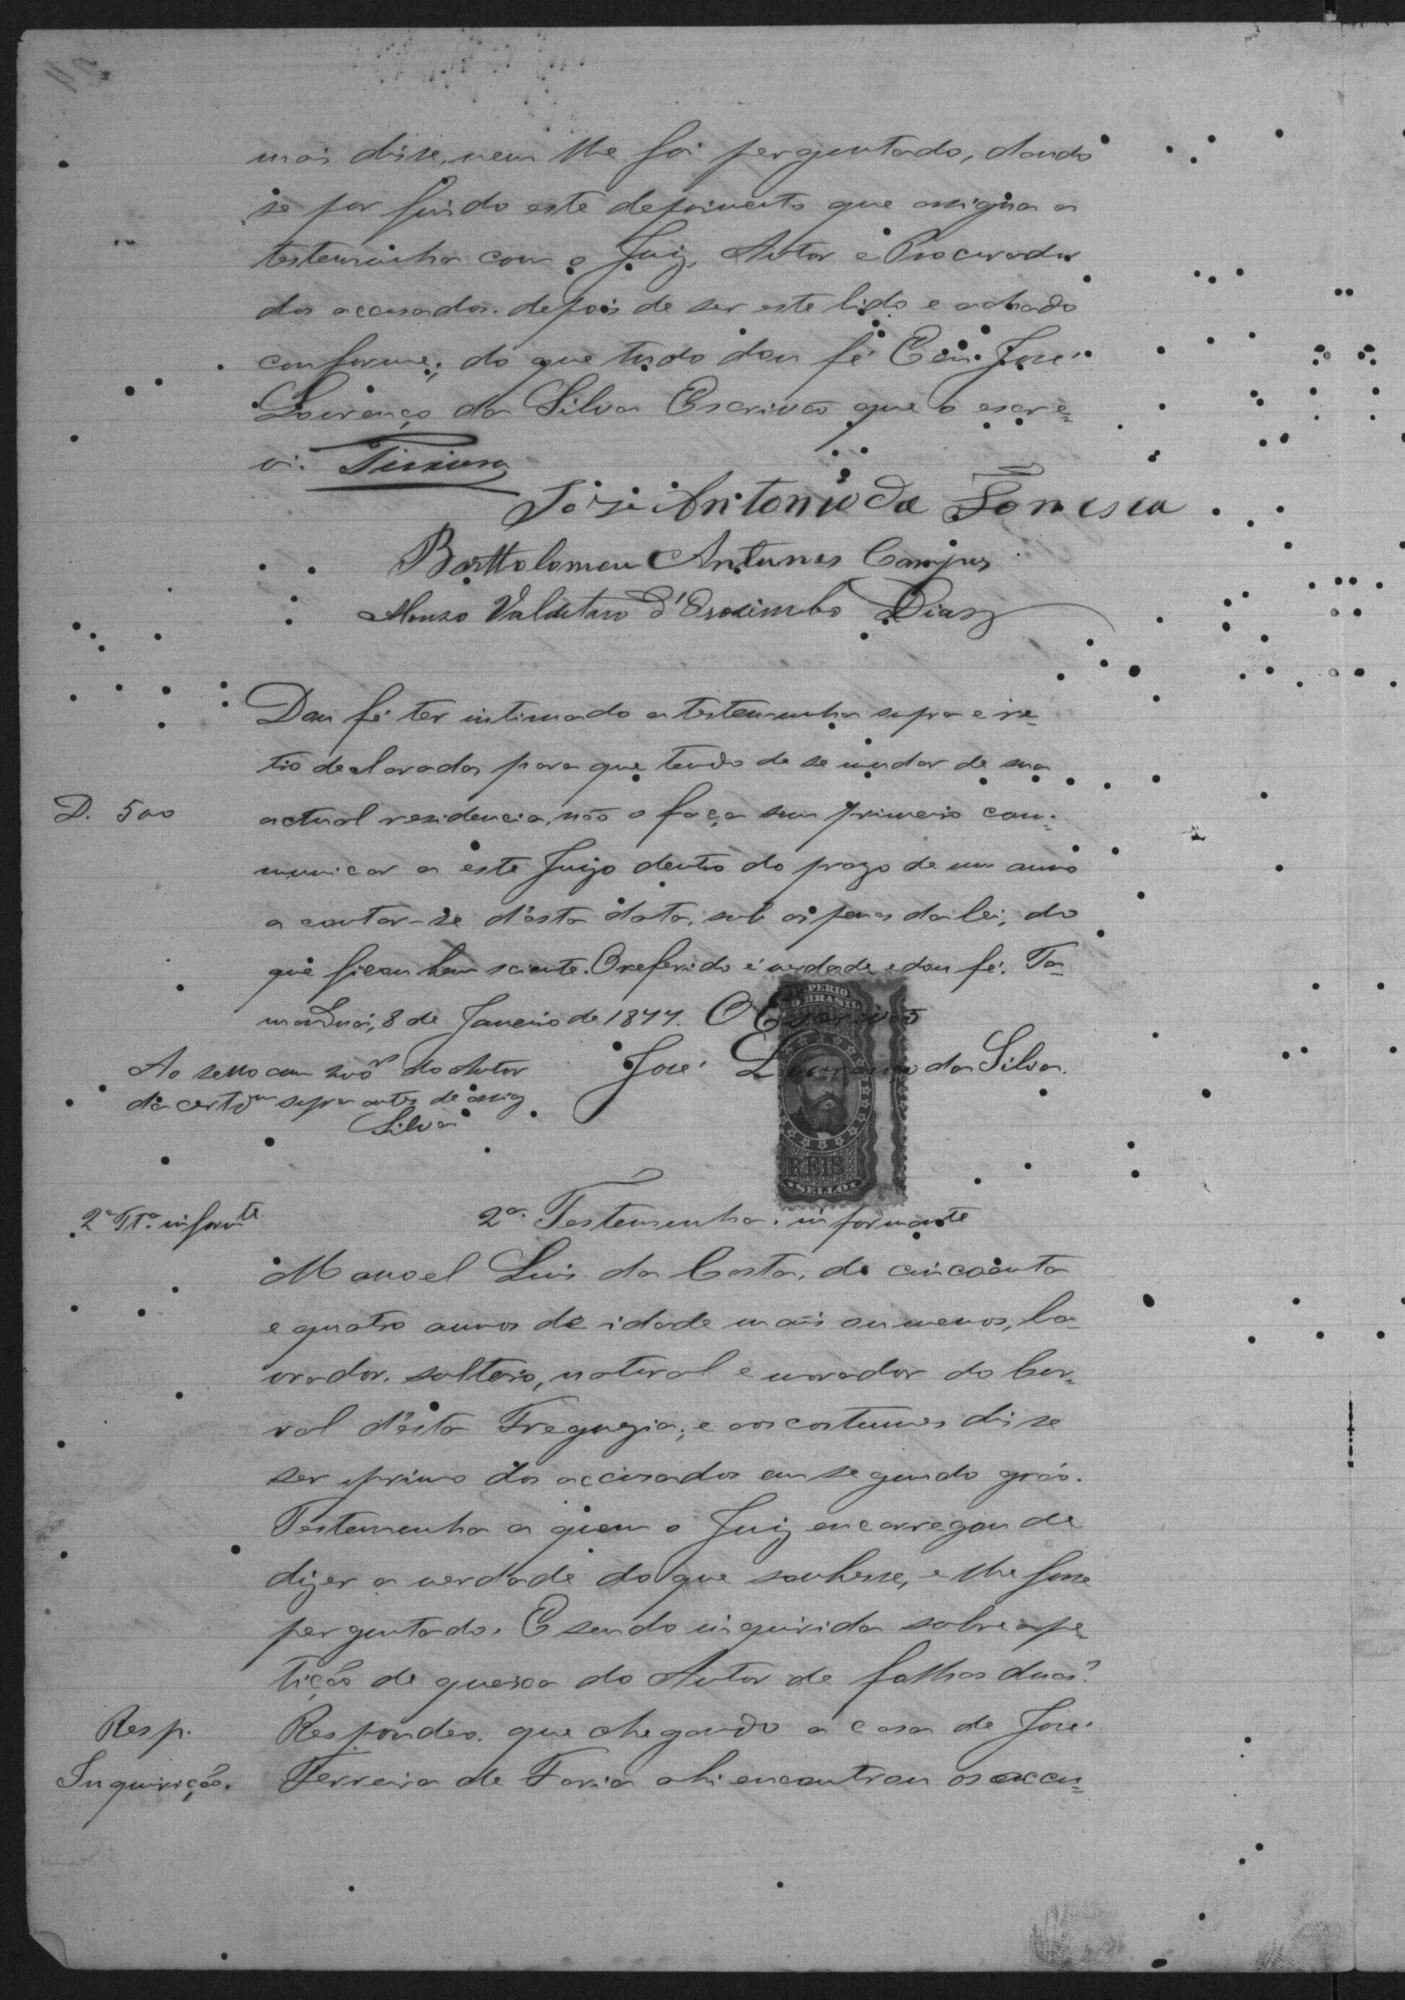 mais disse, nem lhe foi perguntado, dando
se por findo este depoimento que assigna a
testemunha com o Juiz, Autor e Procurador
dos accusados. depois de ser este lido e achado
conforme; do que tudo dou fé Eu José
Lourenço da Silva Escrivão que o escre=
vi.
José Antonio da Fonseca
Bartholomeu Antunes Campos
Dias
Dou fé ter intimado a testemunha supra e re=
tro declarada, para que tendo de se mudar de sua
D. 500
actual residencia, não o faça sem primeiro com=
municar a este Juizo dentro do prazo de um anno
a contar-se d'ésta data, sob as penas da lei; do
que ficou bem sciente. O referido é verdade e dou fé. Ta=
manduá, 8 de Janeiro de 1877. O Escrivão
José Lourenço da Silva.
Ao sello com 200 rs do Autor
da certᵐ supra antes de assig
Silva
IMPERIO
DO BRASIL
REIS
SELLO
2ª Tª. informᵗᵉ
2ª. Testemunha. informante
Manoel Luis da Costa, de cincoenta
e quatro annos de idade mais ou menos, la=
vrador, solteiro, natural e morador do Cur=
ral d'ésta Freguezia; e aos costumes disse
ser primo dos accusados em segundo gráo.
Testemunha a quem o Juiz encarregou de
dizer a verdade do que soubesse, e lhe fosse
perguntado. E sendo inquirida sobre a pe=
tição de queixa do Autor de folhas duas?
Resp.
Respondeo. que chegando a casa de José
Inquirição.
Ferreira de Faria ahi encontrou os accu=